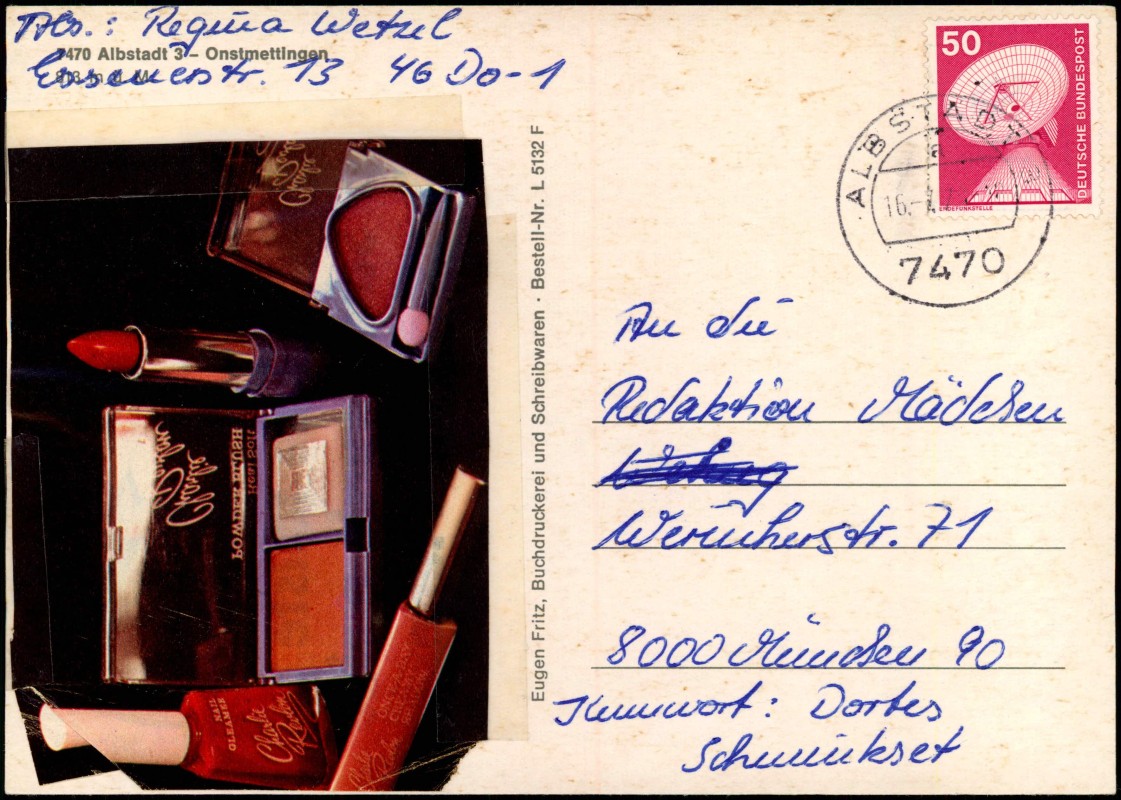 Abs.: Regina Wetzel
7470 Albstadt 3 – Onstmettingen
Essenerstr. 13 46 Do-1
Eugen Fritz, Buchdruckerei und Schreibwaren · Bestell-Nr. L 5132 F
50
DEUTSCHE BUNDESPOST
ERDEFUNKSTELLE
ALBSTADT
16.-
7470
An die
Redaktion Mädchen
Werinherstr. 71
8000 München 90
Kennwort: Dortes
Schminkset
POWDER BLUSH
NAIL
GLEAMER
Charles
Revson